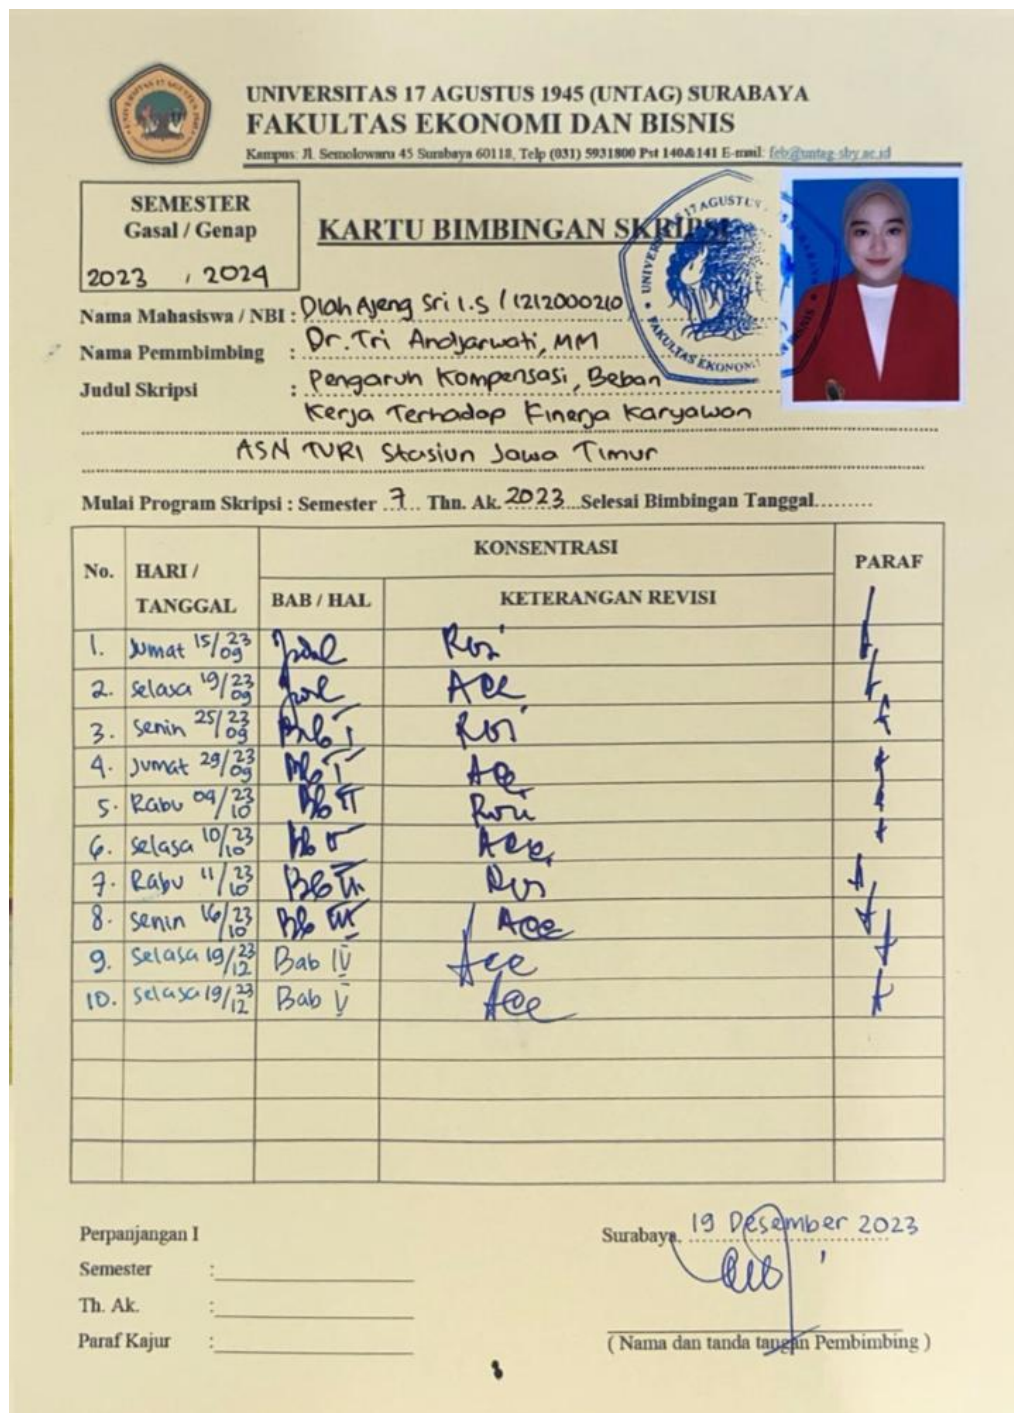 UNIVERSITAS 17 AGUSTUS 1945 (UNTAG) SURABAYA
FAKULTAS EKONOMI DAN BISNIS
Kampus: Jl. Semolowaru 45 Surabaya 60118, Telp (031) 5931800 Pst 140&141 E-mail: feb@untag-sby.ac.id
SEMESTER
Gasal / Genap
2023 , 2024
KARTU BIMBINGAN SKRIPSI
Nama Mahasiswa / NBI : Diah Ajeng Sri I.S / 1212000210
Nama Pemmbimbing : Dr. Tri Andjarwati, MM
Judul Skripsi : Pengaruh Kompensasi, Beban
Kerja Terhadap Kinerja Karyawan
ASN TVRI Stasiun Jawa Timur
Mulai Program Skripsi : Semester 7 Thn. Ak. 2023 Selesai Bimbingan Tanggal.........
No. HARI / TANGGAL KONSENTRASI PARAF
BAB / HAL KETERANGAN REVISI
1. Jumat 15/09 23 Judul Revisi
2. Selasa 19/09 23 Judul Acc
3. Senin 25/09 23 Bab I Revisi
4. Jumat 29/09 23 Bab I Acc
5. Rabu 04/10 23 Bab II Revisi
6. Selasa 10/10 23 Bab II Acc
7. Rabu 11/10 23 Bab III Revisi
8. Senin 16/10 23 Bab III Acc
9. Selasa 19/12 23 Bab IV Acc
10. Selasa 19/12 23 Bab V Acc
Perpanjangan I
Semester :
Th. Ak. :
Paraf Kajur :
Surabaya, 19 Desember 2023
( Nama dan tanda tangan Pembimbing )